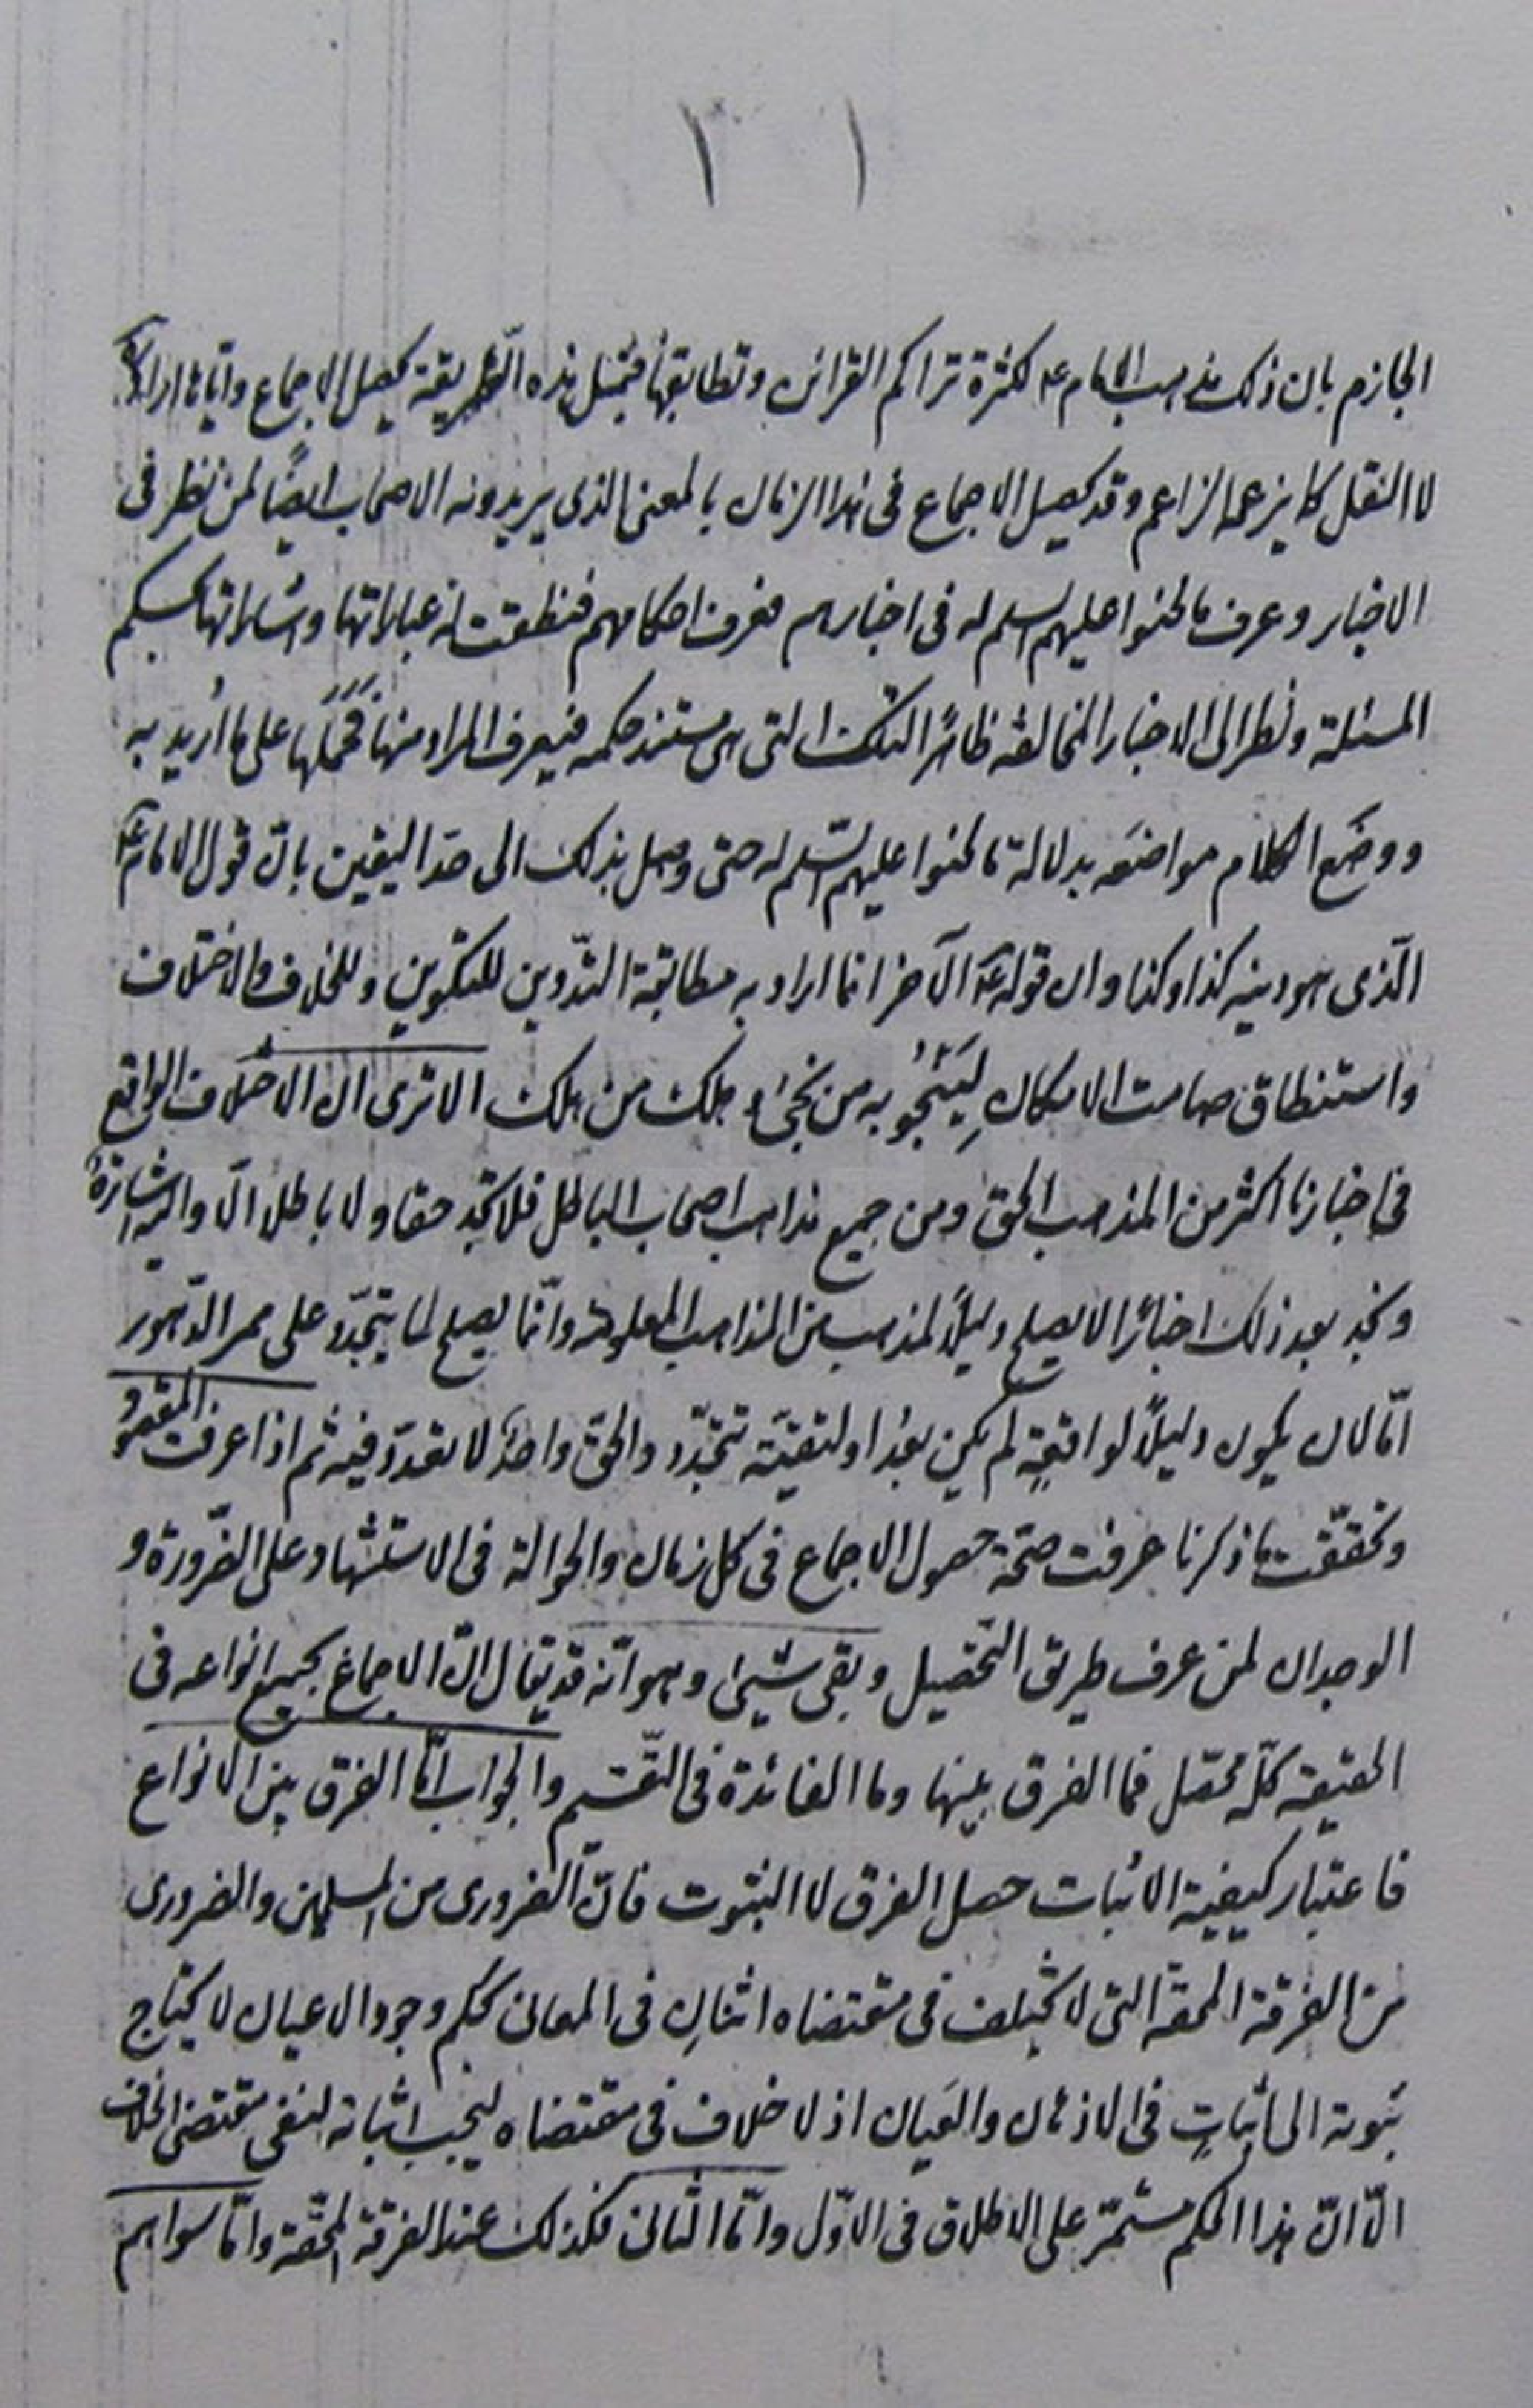 ١ ١
الجازم بان ذلك مذهب الامام ع لكثرة تراكم القرائن وتطابقها فبمثل هذه الطريقة يحصل الاجماع واياها ارادوا
لا النقل كما يزعمه الزاعم وقد يحصل الاجماع فى هذا الزمان بالمعنى الذى يريدونه الاصحاب ايضًا لمن نظر فى
الاخبار وعرف ما لحنوا عليهم السلم له فى اخبارهم فعرف احكامهم فنطقت له عباراتها واشاراتها بحكم
المسئلة ونظر الى الاخبار المخالفة ظاهرًا لتلك التى هى مستند حكمه فيعرف المراد منها فحملها على ما اُريد به
ووضَع الكلام مواضعَه بدلالة ما لحنوا عليهم السّلم له حتى وصل بذلك الى حدّ اليقين بانّ قول الامام ع
الّذى هو دينه كذا وكذا وان قوله ع الآخر انما اراد به مطابقة التّدوين للتكوين وللخلاف والاختلاف
واستنطاق صامت الامكانِ لِيَنْجُوَ به من نجىٰ و هلك من هلك الا ترى ان الاختلاف الواقع
فى اخبارنا اكثر من المذهب الحق ومن جميع مذاهب اصحاب الباطل فلا تجد حقا ولا باطلا الّا واليه اشارةٌ
وتجد بعد ذلك اخبارًا لا يصلح دليلًا لمذهب من المذاهب المعلومة وانّما يصلح لما يتجدّد على ممر الدّهور
امّا لان يكون دليلًا لواقعةٍ لم يكن بعدُ او لتقيّة تتجدّد والحقّ واحدٌ لا تعدّد فيه ثم اذا عرفت المقصود
وتحقّقت ما ذكرنا عرفت صحّة حصول الاجماع فى كل زمان والحوالة فى الاستشهاد على الضّرورة و
الوجدان لمن عرف طريق التّحصيل وبقى شيئ وهو انّه قد يقال انّ الاجماع بجميع انواعه فى
الحقيقة كلّه محصّل فما الفرق بينها وما الفائدة فى التّقسيم والجواب امّا الفرق بين الانواع
فاعتبار كيفية الاثبات حصل الفرق لا الثبوت فانّ الضرورى من المسلمين والضرورى
من الفرقة المحقة التى لا تختلف فى مقتضاه اثنانِ فى المعانى كحكم وجود الاعيان لا يحتاج
ثبوته الى اثباتٍ فى الاذهان والعيان اذ لا خلاف فى مقتضاه ليجب اثباته لنفى مقتضى الخلاف
الّا انّ هذا الحكم مستمرّ على الاطلاق فى الاوّل وامّا الثّانى فكذلك عند الفرقة المحقّة وامّا سواهم